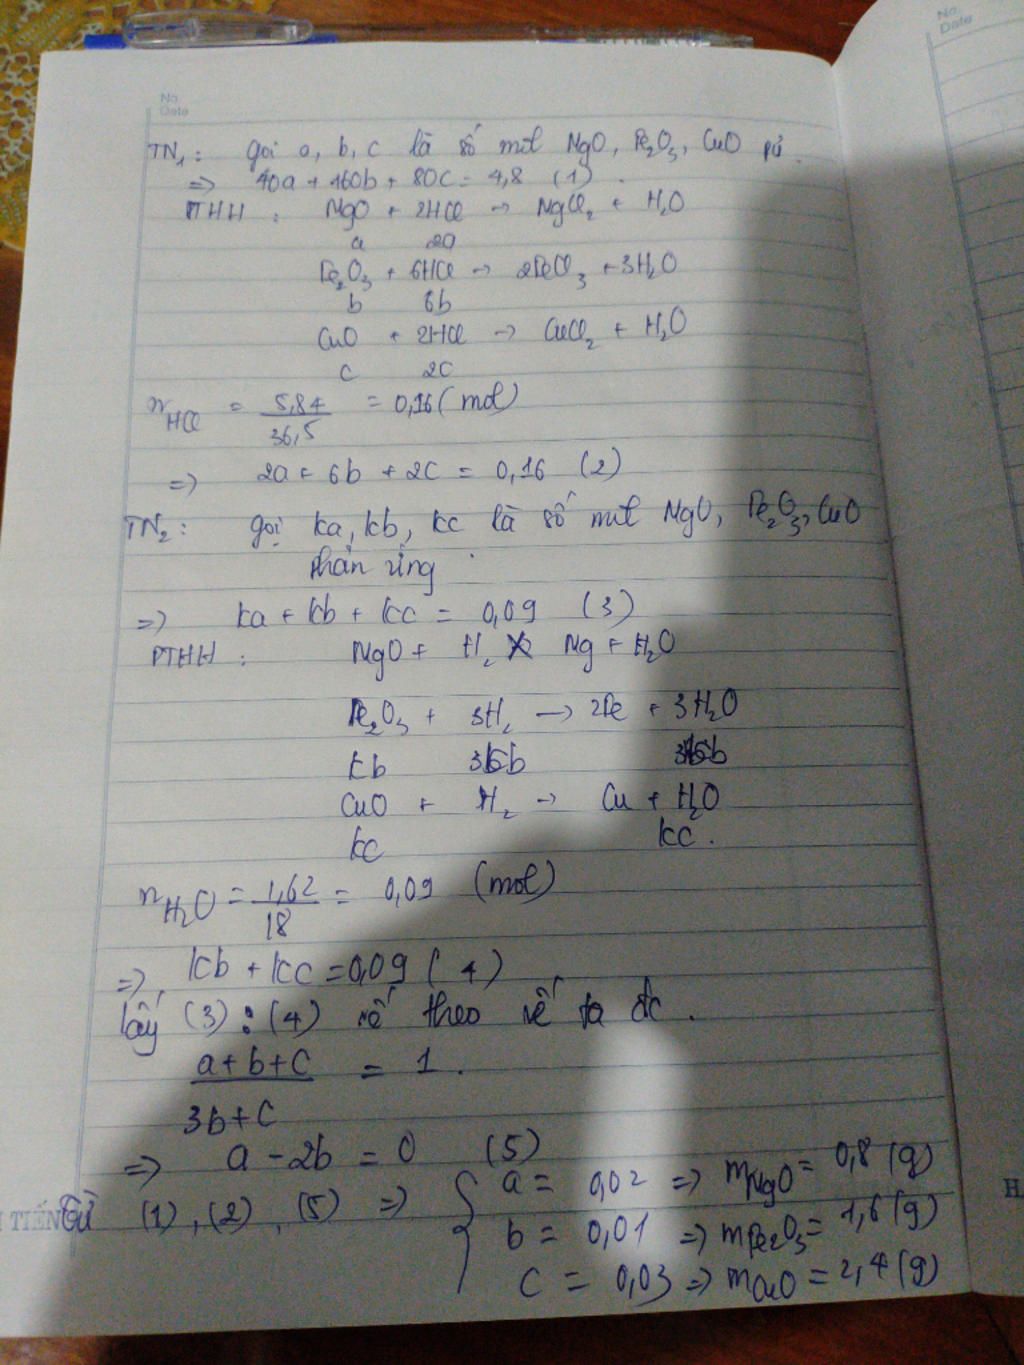 No.
Date
No.
Date
TN₁: gọi a, b, c là số mol MgO, Fe₂O₃, CuO pứ.
=> 40a + 160b + 80c = 4,8 (1).
PTHH: MgO + 2HCl → MgCl₂ + H₂O
a 2a
Fe₂O₃ + 6HCl → 2FeCl₃ + 3H₂O
b 6b
CuO + 2HCl → CuCl₂ + H₂O
c 2c
n_HCl = 5,84/36,5 = 0,16 (mol)
=> 2a + 6b + 2c = 0,16 (2)
TN₂: gọi ka, kb, kc là số mol MgO, Fe₂O₃, CuO
phản ứng.
=> ka + kb + kc = 0,09 (3)
PTHH: MgO + H₂ Mg + H₂O
Fe₂O₃ + 3H₂ → 2Fe + 3H₂O
kb 3kb 3kb
CuO + H₂ → Cu + H₂O
kc kc.
n_H₂O = 1,62/18 = 0,09 (mol)
=> kb + kc = 0,09 (4)
lấy (3) : (4) vế theo vế ta đc.
a+b+c/3b+c = 1.
=> a - 2b = 0 (5)
TIẾN Từ (1), (2), (5) => { a = 0,02 => mMgO = 0,8 (g)
b = 0,01 => mFe₂O₃ = 1,6 (g)
c = 0,03 => mCuO = 2,4 (g)
H